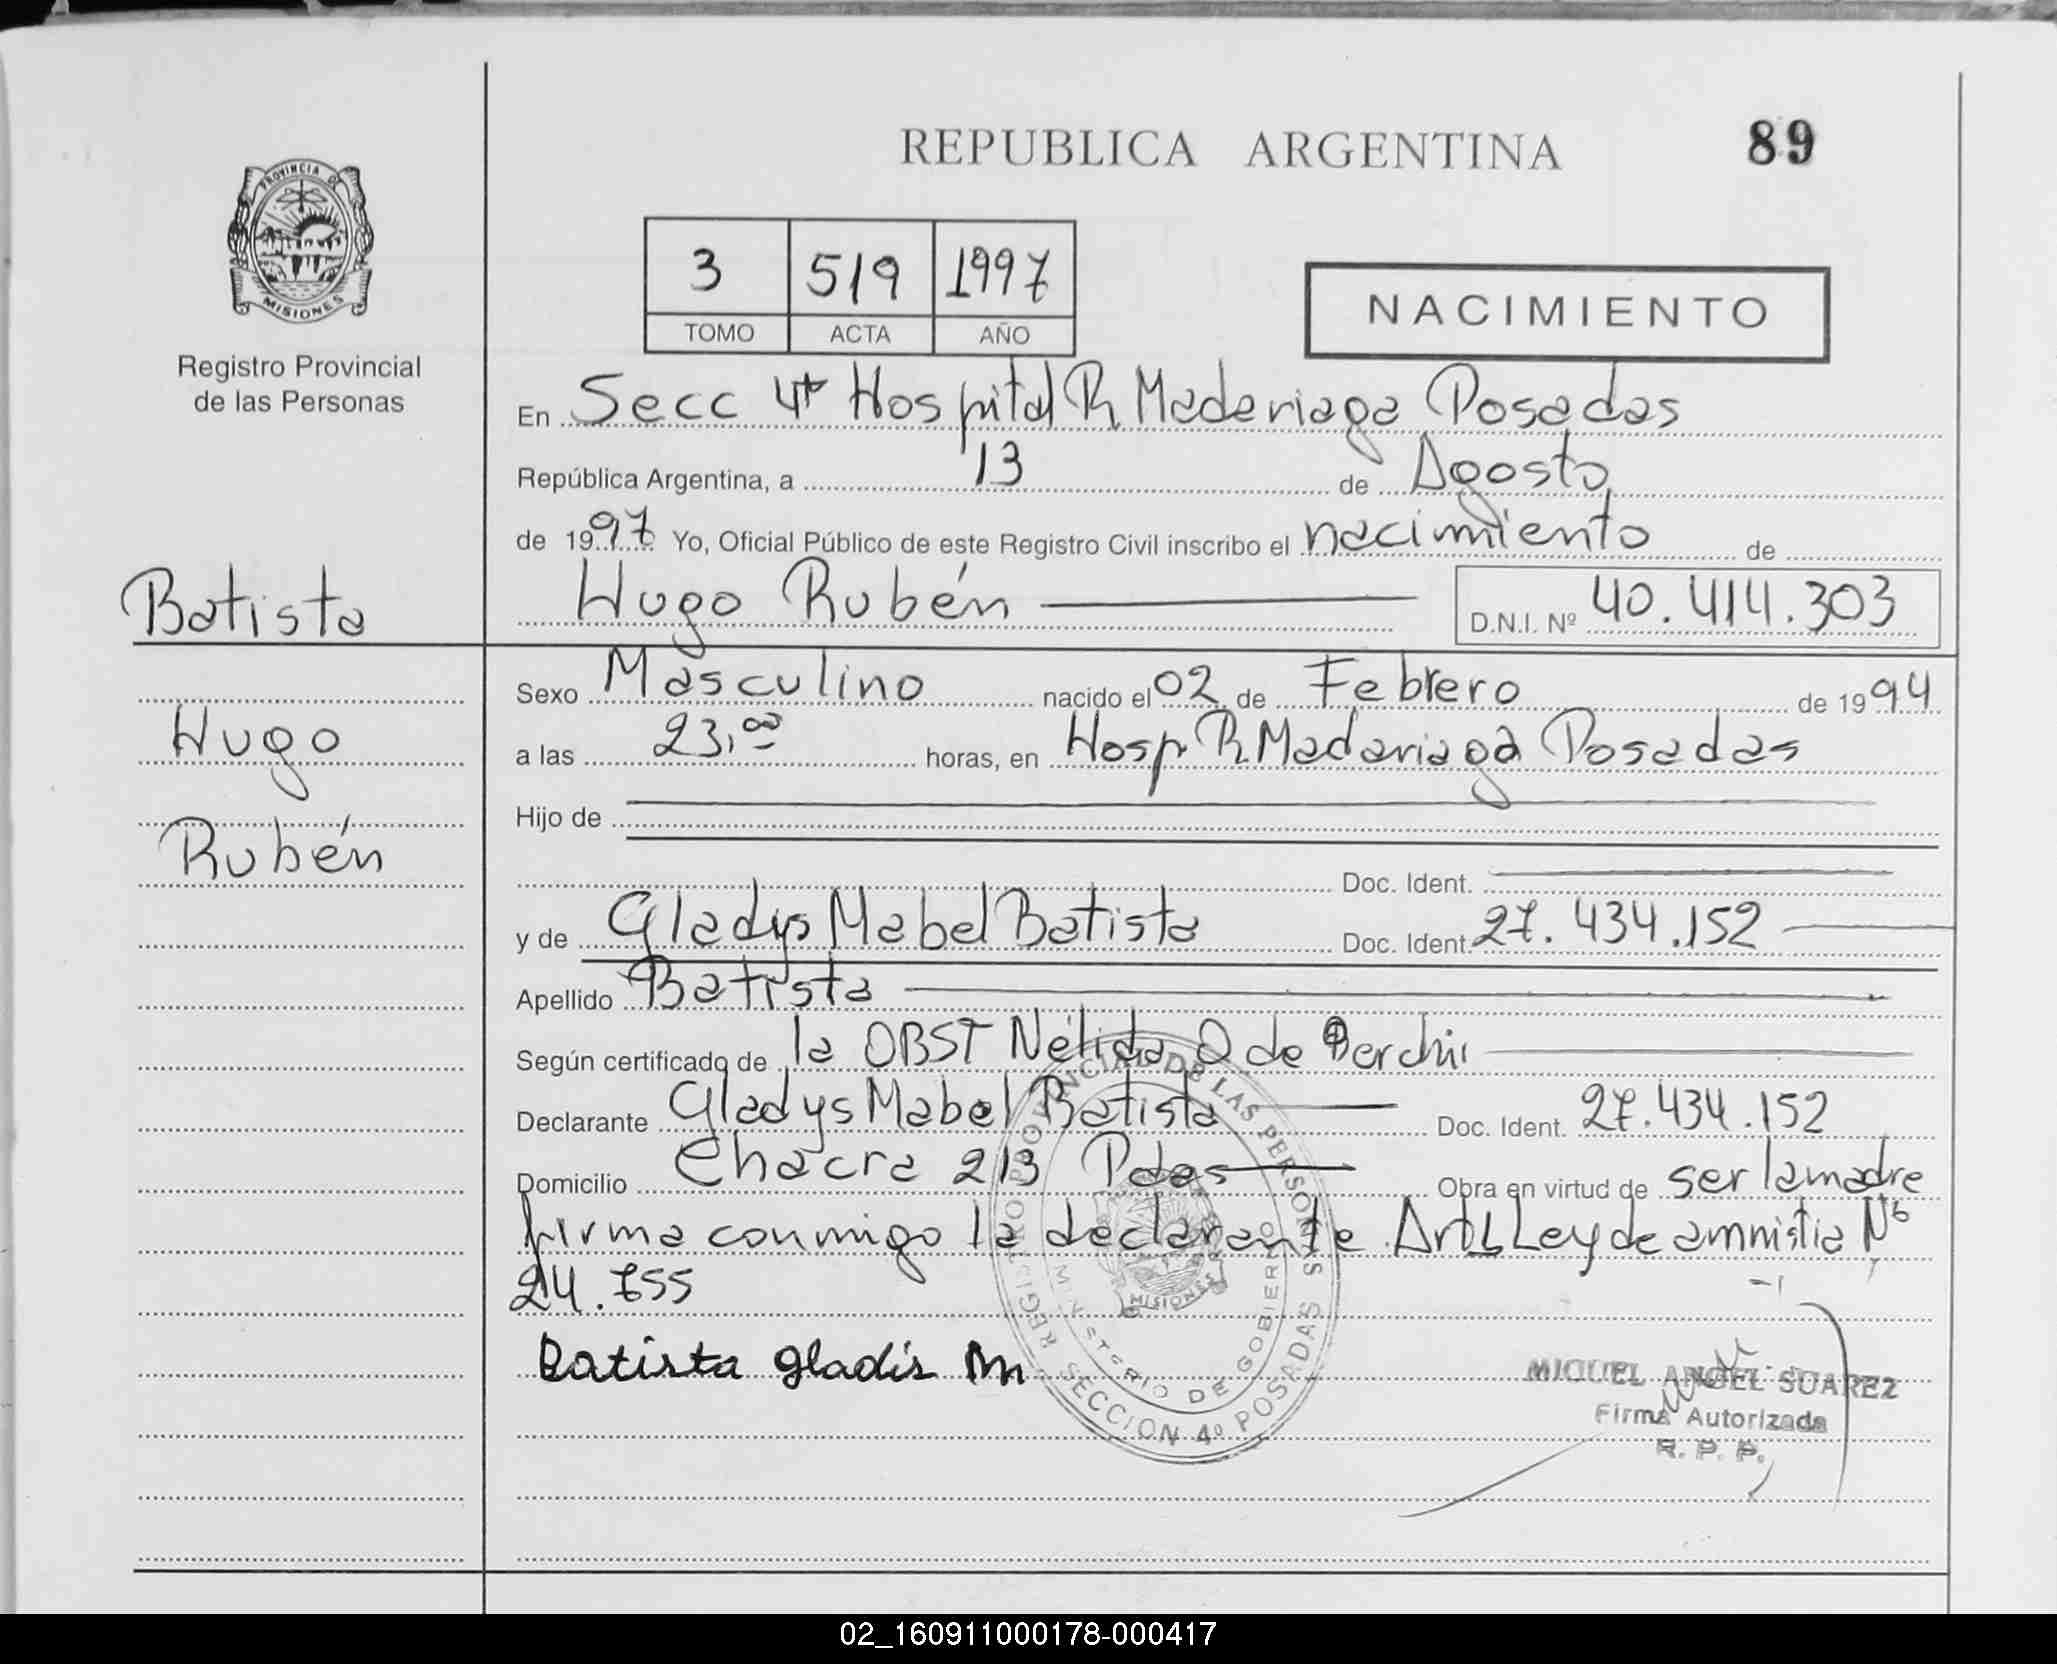 REPUBLICA ARGENTINA
89
PROVINCIA DE
MISIONES
Registro Provincial
de las Personas
3 519 1997
TOMO ACTA AÑO
NACIMIENTO
En Secc 4ta Hospital R Madariaga Posadas
República Argentina, a 13 de Agosto
de 1997 Yo, Oficial Público de este Registro Civil inscribo el nacimiento de
Batista
Hugo Rubén D.N.I. Nº 40.414.303
Sexo Masculino nacido el 02 de Febrero de 1994
Hugo
a las 23,00 horas, en Hosp R Madariaga Posadas
Hijo de
Rubén
Doc. Ident.
y de Gladys Mabel Batista Doc. Ident. 27.434.152
Apellido Batista
Según certificado de la OBST Nélida O de
Declarante Gladys Mabel Batista Doc. Ident. 27.434.152
Domicilio Chacra 213 Pdas Obra en virtud de ser la madre
firma conmigo la declarante Ley de amnistia Nº
24.755
Batista gladis M
REGISTRO PROVINCIAL DE LAS PERSONAS
MINISTERIO DE GOBIERNO
MISIONES
SECCION 4º POSADAS
MIGUEL ANGEL SUAREZ
Firma Autorizada
R. P. P.
02_160911000178-000417